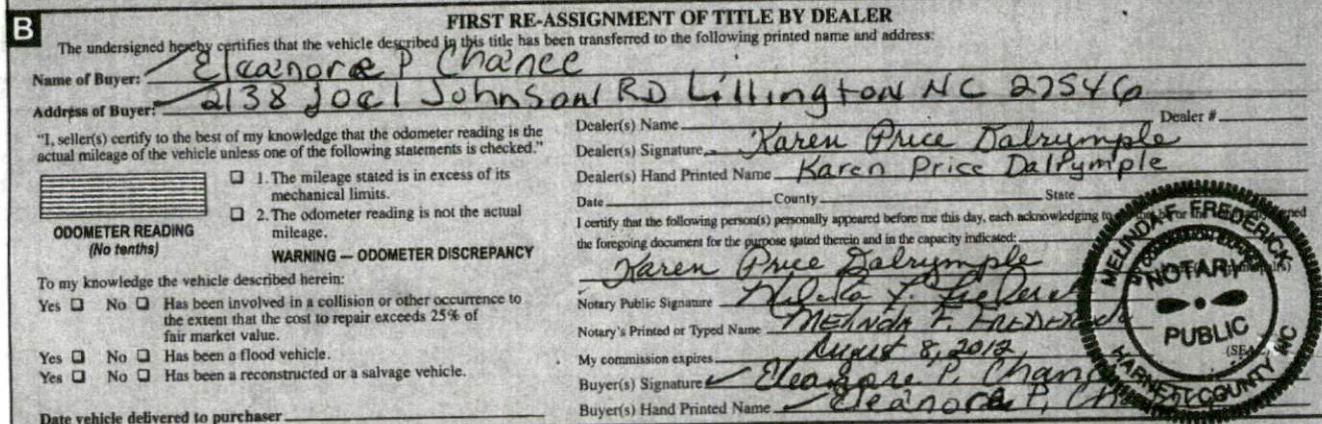 B
FIRST RE-ASSIGNMENT OF TITLE BY DEALER
The undersigned hereby certifies that the vehicle described in this title has been transferred to the following printed name and address:
Name of Buyer: Eleanore P Chance
Address of Buyer: 2138 Joel Johnson RD Lillington NC 27546
"I, seller(s) certify to the best of my knowledge that the odometer reading is the
actual mileage of the vehicle unless one of the following statements is checked."
ODOMETER READING
(No tenths)
☐ 1. The mileage stated is in excess of its
mechanical limits.
☐ 2. The odometer reading is not the actual
mileage.
WARNING — ODOMETER DISCREPANCY
To my knowledge the vehicle described herein:
Yes ☐ No ☐ Has been involved in a collision or other occurrence to
the extent that the cost to repair exceeds 25% of
fair market value.
Yes ☐ No ☐ Has been a flood vehicle.
Yes ☐ No ☐ Has been a reconstructed or a salvage vehicle.
Date vehicle delivered to purchaser
Dealer(s) Name Dealer #
Dealer(s) Signature Karen Price Dalrymple
Dealer(s) Hand Printed Name Karen Price Dalrymple
Date County State
I certify that the following person(s) personally appeared before me this day, each acknowledging to
the foregoing document for the purpose stated therein and in the capacity indicated:
Karen Price Dalrymple
Notary Public Signature
Notary's Printed or Typed Name MELINDA F. FREDERICK
My commission expires August 8, 2012
Buyer(s) Signature Eleanore P. Chan
Buyer(s) Hand Printed Name Eleanore P. Ch
MELINDA F. FREDERICK
NOTARY
PUBLIC
(SEAL)
HARNETT COUNTY NC